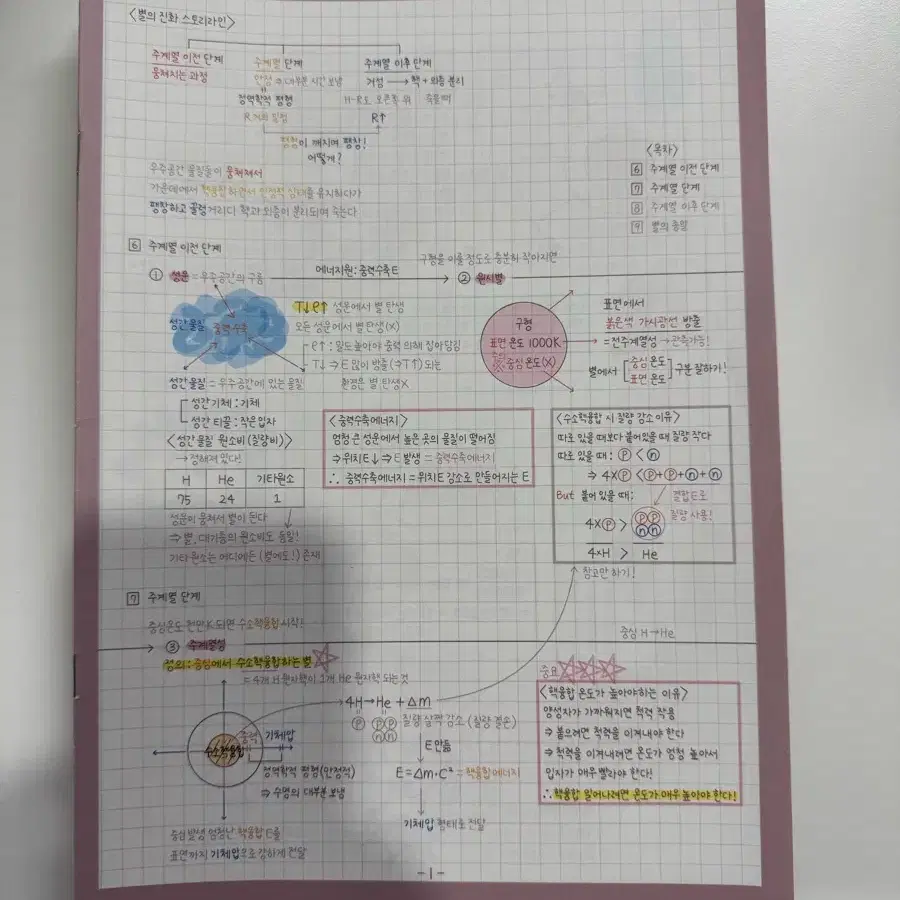 <별의 진화 스토리라인>
주계열 이전 단계
뭉쳐지는 과정
주계열 단계
안정 → 대부분 시간 보냄
정역학적 평형
R 거의 일정
주계열 이후 단계
거성 → 핵 + 외층 분리
H-R도 오른쪽 위
죽을때
R↑
평형이 깨지며 팽창!
어떻게?
우주공간 물질들이 뭉쳐져서
가운데에서 핵융합 하면서 안정적 상태를 유지하다가
팽창하고 꿀렁거리다 핵과 외층이 분리되며 죽는다
<목차>
6 주계열 이전 단계
7 주계열 단계
8 주계열 이후 단계
9 별의 종말
6 주계열 이전 단계
① 성운 = 우주공간의 구름
에너지원 : 중력수축E
구형을 이룰 정도로 충분히 작아지면
② 원시별
성간 물질
중력 수축
T↓ρ↑ 성운에서 별 탄생
모든 성운에서 별 탄생(X)
ρ↑ : 밀도 높아야 중력 의해 잡아당김
T↓ ⇒ E 많이 방출(⇒T↑) 되는
환경은 별 탄생X
구형
표면 온도 1000K
중심 온도(X)
표면에서
붉은색 가시광선 방출
=전주계열성 → 관측가능!
별에서 [중심 온도
표면 온도] 구분 잘하기!
성간 물질 = 우주공간에 있는 물질
성간 기체 : 기체
성간 티끌 : 작은입자
<성간 물질 원소비(질량비)>
→ 정해져 있다!
H He 기타원소
75 24 1
성운이 뭉쳐서 별이 된다
⇒ 별, 대기들의 원소비도 동일!
기타 원소는 어디에든 (별에도!) 존재
<중력수축에너지>
엄청 큰 성운에서 높은 곳의 물질이 떨어짐
⇒ 위치E↓ ⇒ E 발생 = 중력수축에너지
∴ 중력수축에너지 = 위치E 감소로 만들어지는 E
<수소핵융합 시 질량 감소 이유>
따로 있을 때보다 붙어있을 때 질량 작다
따로 있을 때 : P < n
⇒ 4×P < P+P+n+n
But 붙어 있을 때 :
결합E로
질량 사용!
4×P > P P n n
4×H > He
참고만 하기!
7 주계열 단계
중심온도 천만K 되면 수소핵융합 시작!
중심 H→He
③ 주계열성
정의 : 중심에서 수소핵융합하는 별
= 4개 H 원자핵이 1개 He 원자핵 되는 것
4H→He + Δm
P P P n n 질량 살짝 감소 (질량 결손)
E 만듦
E = Δm·C² = 핵융합에너지
기체압 형태로 전달
수소핵융합
중력 기체압
정역학적 평형(안정적)
⇒ 수명의 대부분 보냄
중심 발생 엄청난 핵융합 E를
표면까지 기체압으로 강하게 전달
중요
<핵융합 온도가 높아야하는 이유>
양성자가 가까워지면 척력 작용
⇒ 붙으려면 척력을 이겨내야 한다
⇒ 척력을 이겨내려면 온도가 엄청 높아서
입자가 매우 빨라야 한다!
∴ 핵융합 일어나려면 온도가 매우 높아야 한다!
-1-